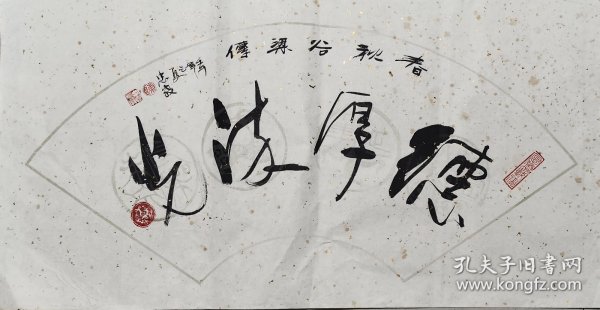 春秋谷梁傳
德厚流光
孔夫子旧书网
www.kongfz.com